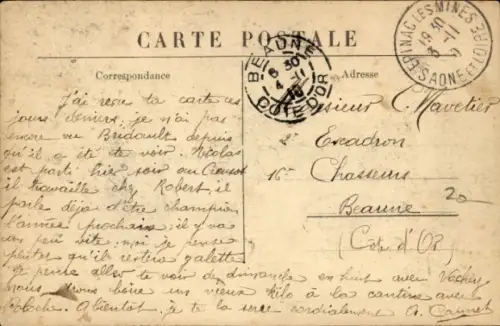 CARTE POSTALE
Correspondance
Adresse
BEAUNE
COTE D'OR
EPINAC LES MINES
SAONE ET LOIRE
J'ai reçu ta carte ces
jours derniers, je n'ai pas
encore vu Bridault depuis
qu'il a été te voir. Nicolas
est parti hier soir au Creusot
il travaille chez Robert, il
parle déjà d'être champion
l'année prochaine, il y va
un peu vite, moi je pense
plutôt qu'il restera galette
je pense aller te voir de dimanche en huit avec
nous irons boire un vieux kilo à la cantine avec
A bientôt. je te la serre cordialement
Monsieur C. Mavetier
Escadron
16e Chasseurs
Beaune
(Côte d'Or)
20